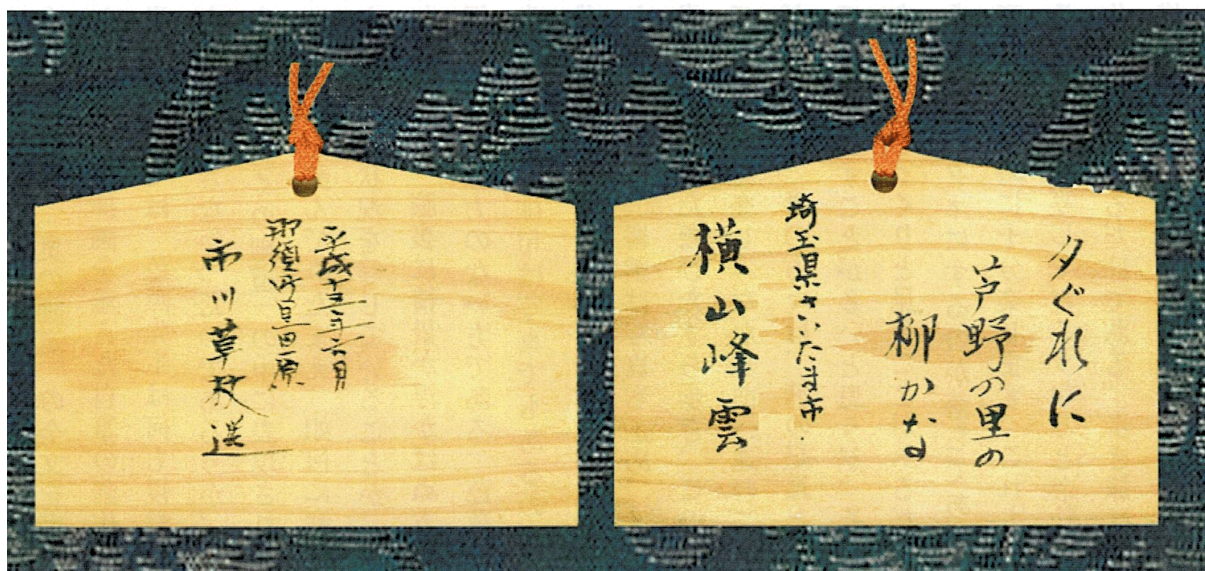 夕ぐれに
芦野の里の
柳かな
埼玉県さいたま市
横山峰雲
平成十三年六月
那須町黒田原
市川草枚選